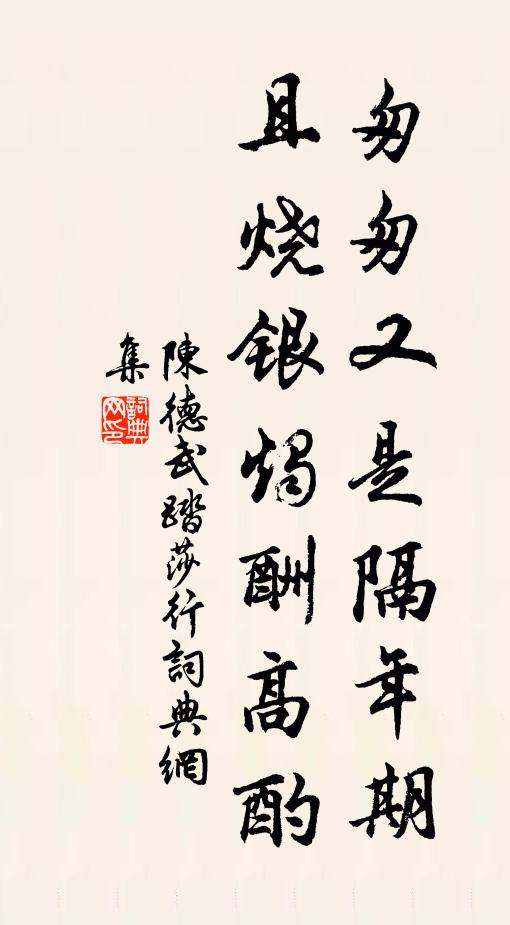 匆匆又是隔年期
且烧银烛酬高酌
陳德武踏莎行詞典網
集
詞典网印